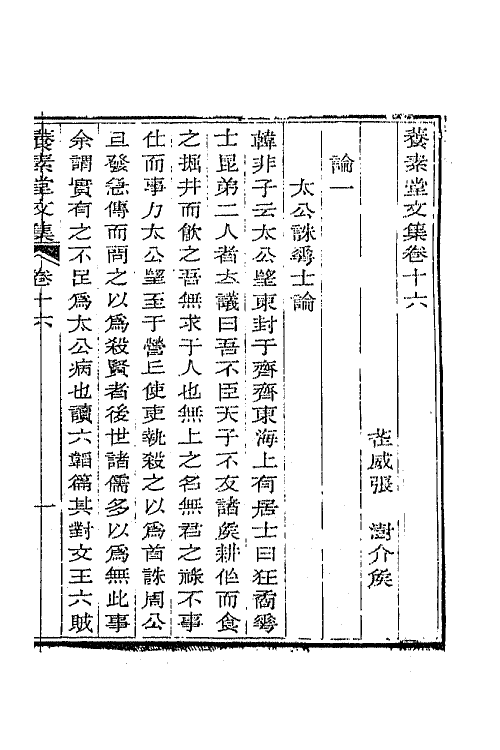 養素堂文集卷十六
茬威張 澍介矦
論一
太公誅䘮士論
韓非子云太公望東封于齊齊東海上有居士曰狂矞䘮
士昆弟二人者立議曰吾不臣天子不友諸矦耕作而食
之掘井而飲之吾無求于人也無上之名無君之祿不事
仕而事力太公望至于營丘使吏執殺之以爲首誅周公
旦發急傳而問之以爲殺賢者後世諸儒多以爲無此事
余謂實有之不足爲太公病也讀六韜篇其對文王六賊
養素堂文集 卷十六 一